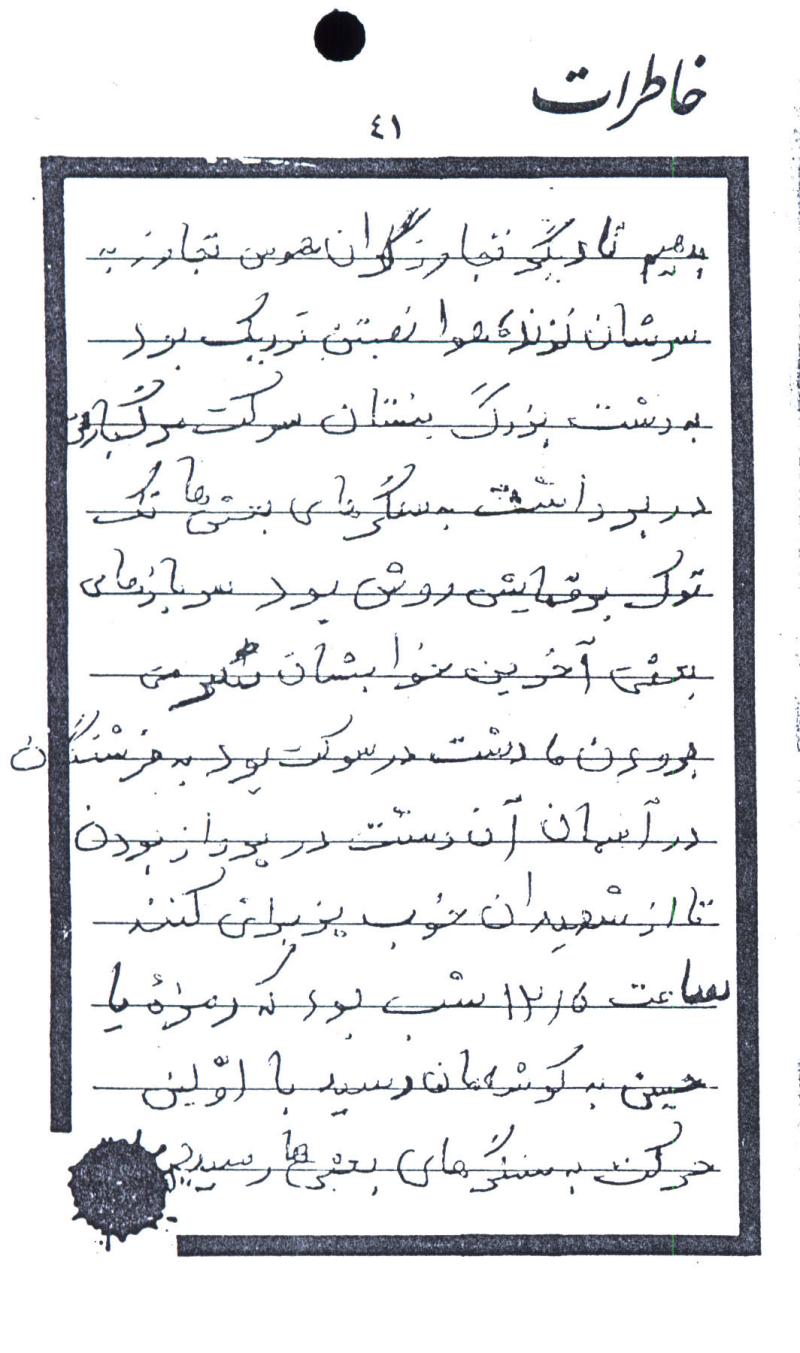 خاطرات
٤١
بدهیم تا دیگر تجاوزگران هوس تجاوز به
سرشان نزنده هوا نسبتن تریک بود
به دشت بزرگ بستان سوکت مرگباری
در بر داشت به سنگرهای بعثی‌ها تک
توک برقهایش روشن بود سربازهای
بعثی آخرین خوابشان می
دشت در سوکت بود به فرشتگان
در آسمان آن دشت در پرواز بودن
تا از شهیدان خوب پزیرای کنند
ساعت ۱۲/۵ شب بود که رمزه یا
حسین به گوشهمان رسید با اوّلین
حرکت به سنگرهای بعثی‌ها رسیدیم